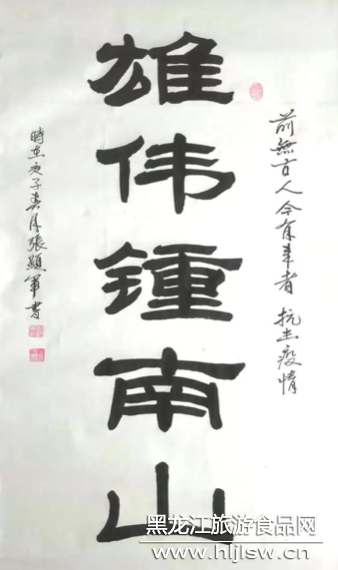 前無古人今有来者 抗击疫情
雄伟鍾南山
時在庚子春月張顯軍書
黑龙江旅游食品网
www.hljlsw.cn